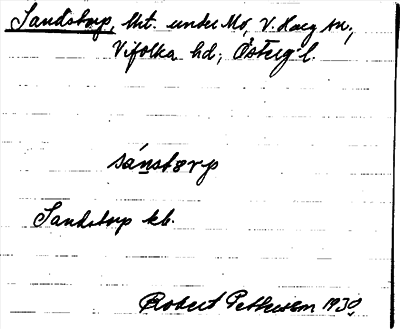 Sandstorp, lht. under Mo, V. Harg sn,
Vifolka hd, Östergl.
sánstørp
Sandstorp kb.
Robert Pettersson 1930